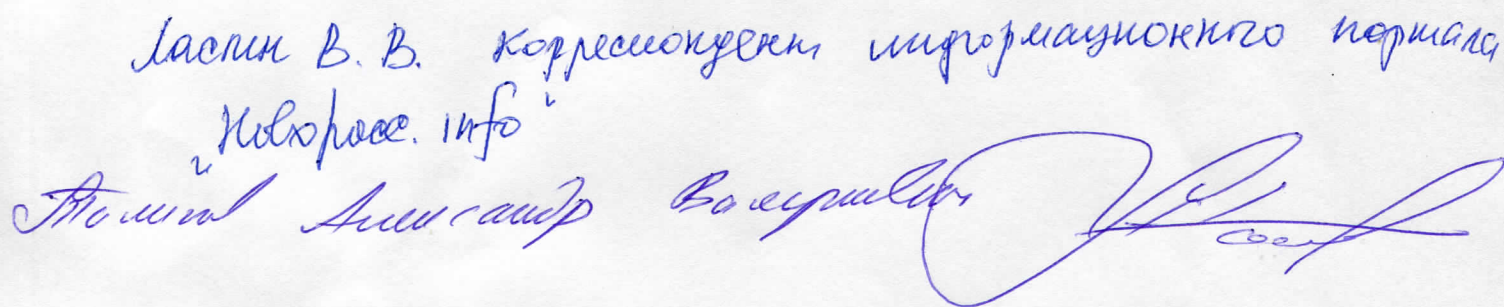 Ласпин В. В. корреспондент информационного портала
"Новоросс. info"
Александр Валериевич